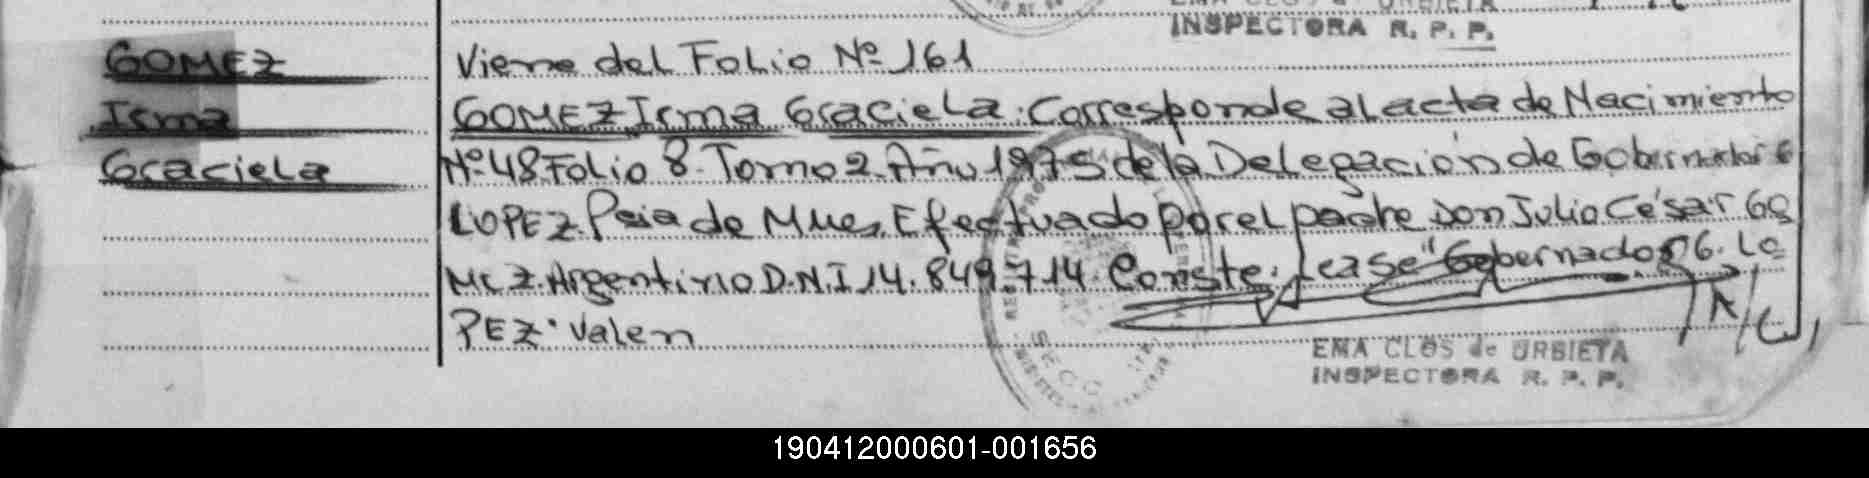 INSPECTORA R. P. P.
GOMEZ
Irma
Graciela
Viene del Folio Nº 161
GOMEZ Irma Graciela. Corresponde al acta de Nacimiento
Nº 48 Folio 8. Tomo 2. Año 1975 de la Delegación de
LOPEZ. Pcia de Mnes, Efectuado por el padre don Julio César Go
Mez. Argentino D.N.I 14.849.714. Conste. Lease "Gobernador G. Lo
PEZ" Valen
EMA CLOS de URBIETA
INSPECTORA R. P. P.
190412000601-001656